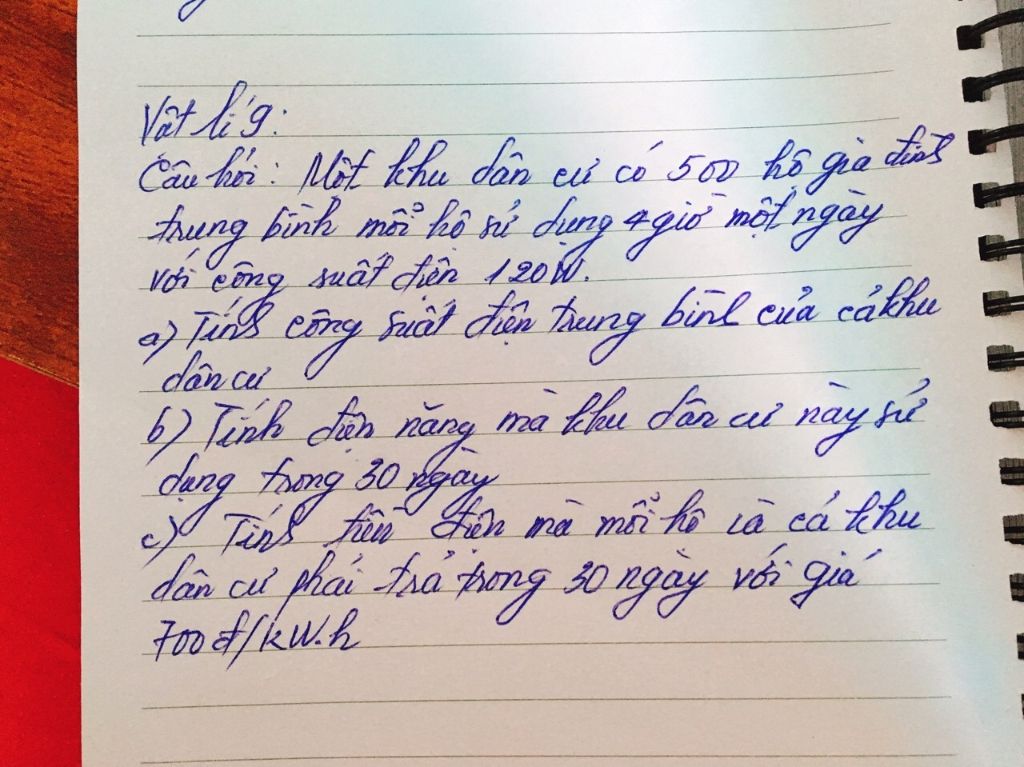 Vật lí 9:
Câu hỏi: Một khu dân cư có 500 hộ gia đình
trung bình mỗi hộ sử dụng 4 giờ một ngày
với công suất điện 120W.
a) Tính công suất điện trung bình của cả khu
dân cư
b) Tính điện năng mà khu dân cư này sử
dụng trong 30 ngày
c) Tính tiền điện mà mỗi hộ và cả khu
dân cư phải trả trong 30 ngày với giá
700đ/kW.h